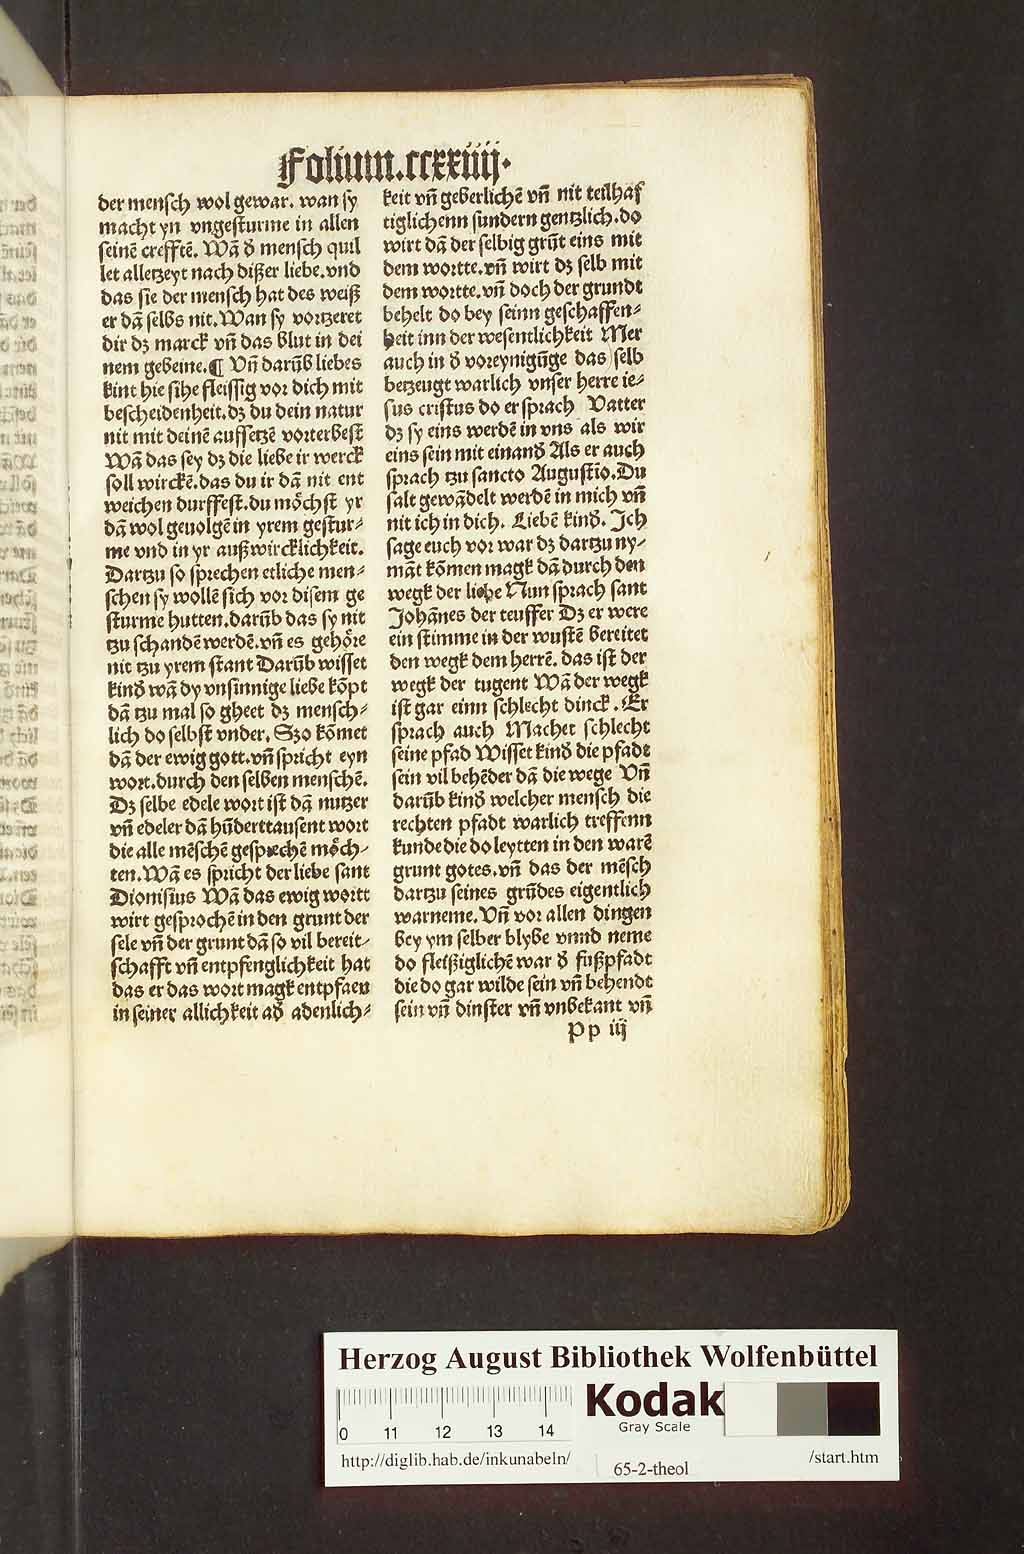 Folium.ccxxiiij.
der mensch wol gewar. wan sy
macht yn vngesturme in allen
seinē crefftē. Wā d̄ mensch quil
let alletzeyt nach dißer liebe.vnd
das sie der mensch hat des weiß
er dā selbs nit.Wan sy vortzeret
dir dz marck vn̄ das blut in dei
nem gebeine.¶ Vn̄ darūb liebes
kint hie sihe fleissig vor dich mit
bescheidenheit.dz du dein natur
nit mit deinē auffsetzē vorterbest
Wā das sey dz die liebe ir werck
soll wirckē.das du ir dā nit ent
weichen durffest.du möchst yr
dā wol geuolgēin yrem gestur⸗
me vnd in yr außwircklichkeit.
Dartzu so sprechen etliche men⸗
schen sy wollē sich vor disem ge
sturme hutten.darūb das sy nit
tzu schandē werdē.vn̄ es gehöre
nit tzu yrem stant Darūb wisset
kind̄ wā dy vnsinnige liebe kōpt
dā tzu mal so gheet dz mensch⸗
lich do selbst vnder. Szo kōmet
dā der ewig gott.vn̄ spricht eyn
wort.durch den selben menschē.
Dz selbe edele wort ist dā nutzer
vn̄ edeler dā hūderttausent wort
die alle mēschē gesprechē möch⸗
ten.Wā es spricht der liebe sant
Dionisius Wā das ewig wortt
wirt gesprochē in den grunt der
sele vn̄ der grunt dā so vil bereit⸗
schafft vn̄ entpfenglichkeit hat
das er das wort magk entpfaen
in seiner allichkeit ad̄ adenlich⸗
keit vn̄ geberlichē vn̄ nit teilhaf
tiglichenn sundern gentzlich.do
wirt dā der selbig grūt eins mit
dem wortte.vn̄ wirt dz selb mit
dem wortte.vn̄ doch der grundt
behelt do bey seinn geschaffen⸗
heit inn der wesentlichkeit Mer
auch in d̄ voreynigūge das selb
betzeugt warlich vnser herre ie⸗
sus cristus do er sprach Vatter
dz sy eins werdē in vns als wir
eins sein mit einand̄ Als er auch
sprach tzu sancto Augustīo.Du
salt gewādelt werdē in mich vn̄
nit ich in dich. Liebē kind̄. Ich
sage euch vor war dz dartzu ny⸗
māt kōmen magk dā durch den
wegk der liebe Nun sprach sant
Johānes der teuffer Dz er were
ein stimme in der wustē bereitet
den wegk dem herrē. das ist der
wegk der tugent Wā der wegk
ist gar einn schlecht dinck. Er
sprach auch Machet schlecht
seine pfad Wisset kind̄ die pfadt
sein vil behēder dā die wege Vn̄
darūb kind̄ welcher mensch die
rechten pfadt warlich treffenn
kunde die do leytten in den warē
grunt gotes.vn̄ das der mēsch
dartzu seines grūdes eigentlich
warneme.Vn̄ vor allen dingen
bey ym selber blybe vnnd neme
do fleißiglichē war d̄ fußpfadt
die do gar wilde sein vn̄ behendt
sein vn̄ dinster vn̄ vnbekant vn̄
Pp iij
Herzog August Bibliothek Wolfenbüttel
0 11 12 13 14
Kodak
Gray Scale
http://diglib.hab.de/inkunabeln/
65-2-theol
/start.htm